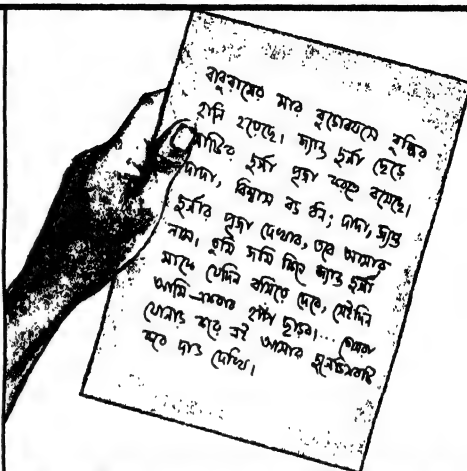 বাবুরামের মার বুড়োবয়সে বুদ্ধির
হানি হয়েছে। জ্যান্ত দুর্গা ছেড়ে
মাটির দুর্গা পূজা করতে বসেছে।
দাদা, বিশ্বাস বড় ধন; দাদা, জ্যান্ত
দুর্গার পূজা দেখাব, তবে আমার
নাম। তুমি জমি কিনে জ্যান্ত দুর্গা
মাকে যেদিন বসিয়ে দেবে, সেইদিন
আমি একবার হাঁপ ছাড়ব।... তোমরা
যোগাড় করে এই আমার দুর্গোৎসবটি
করে দাও দেখি।